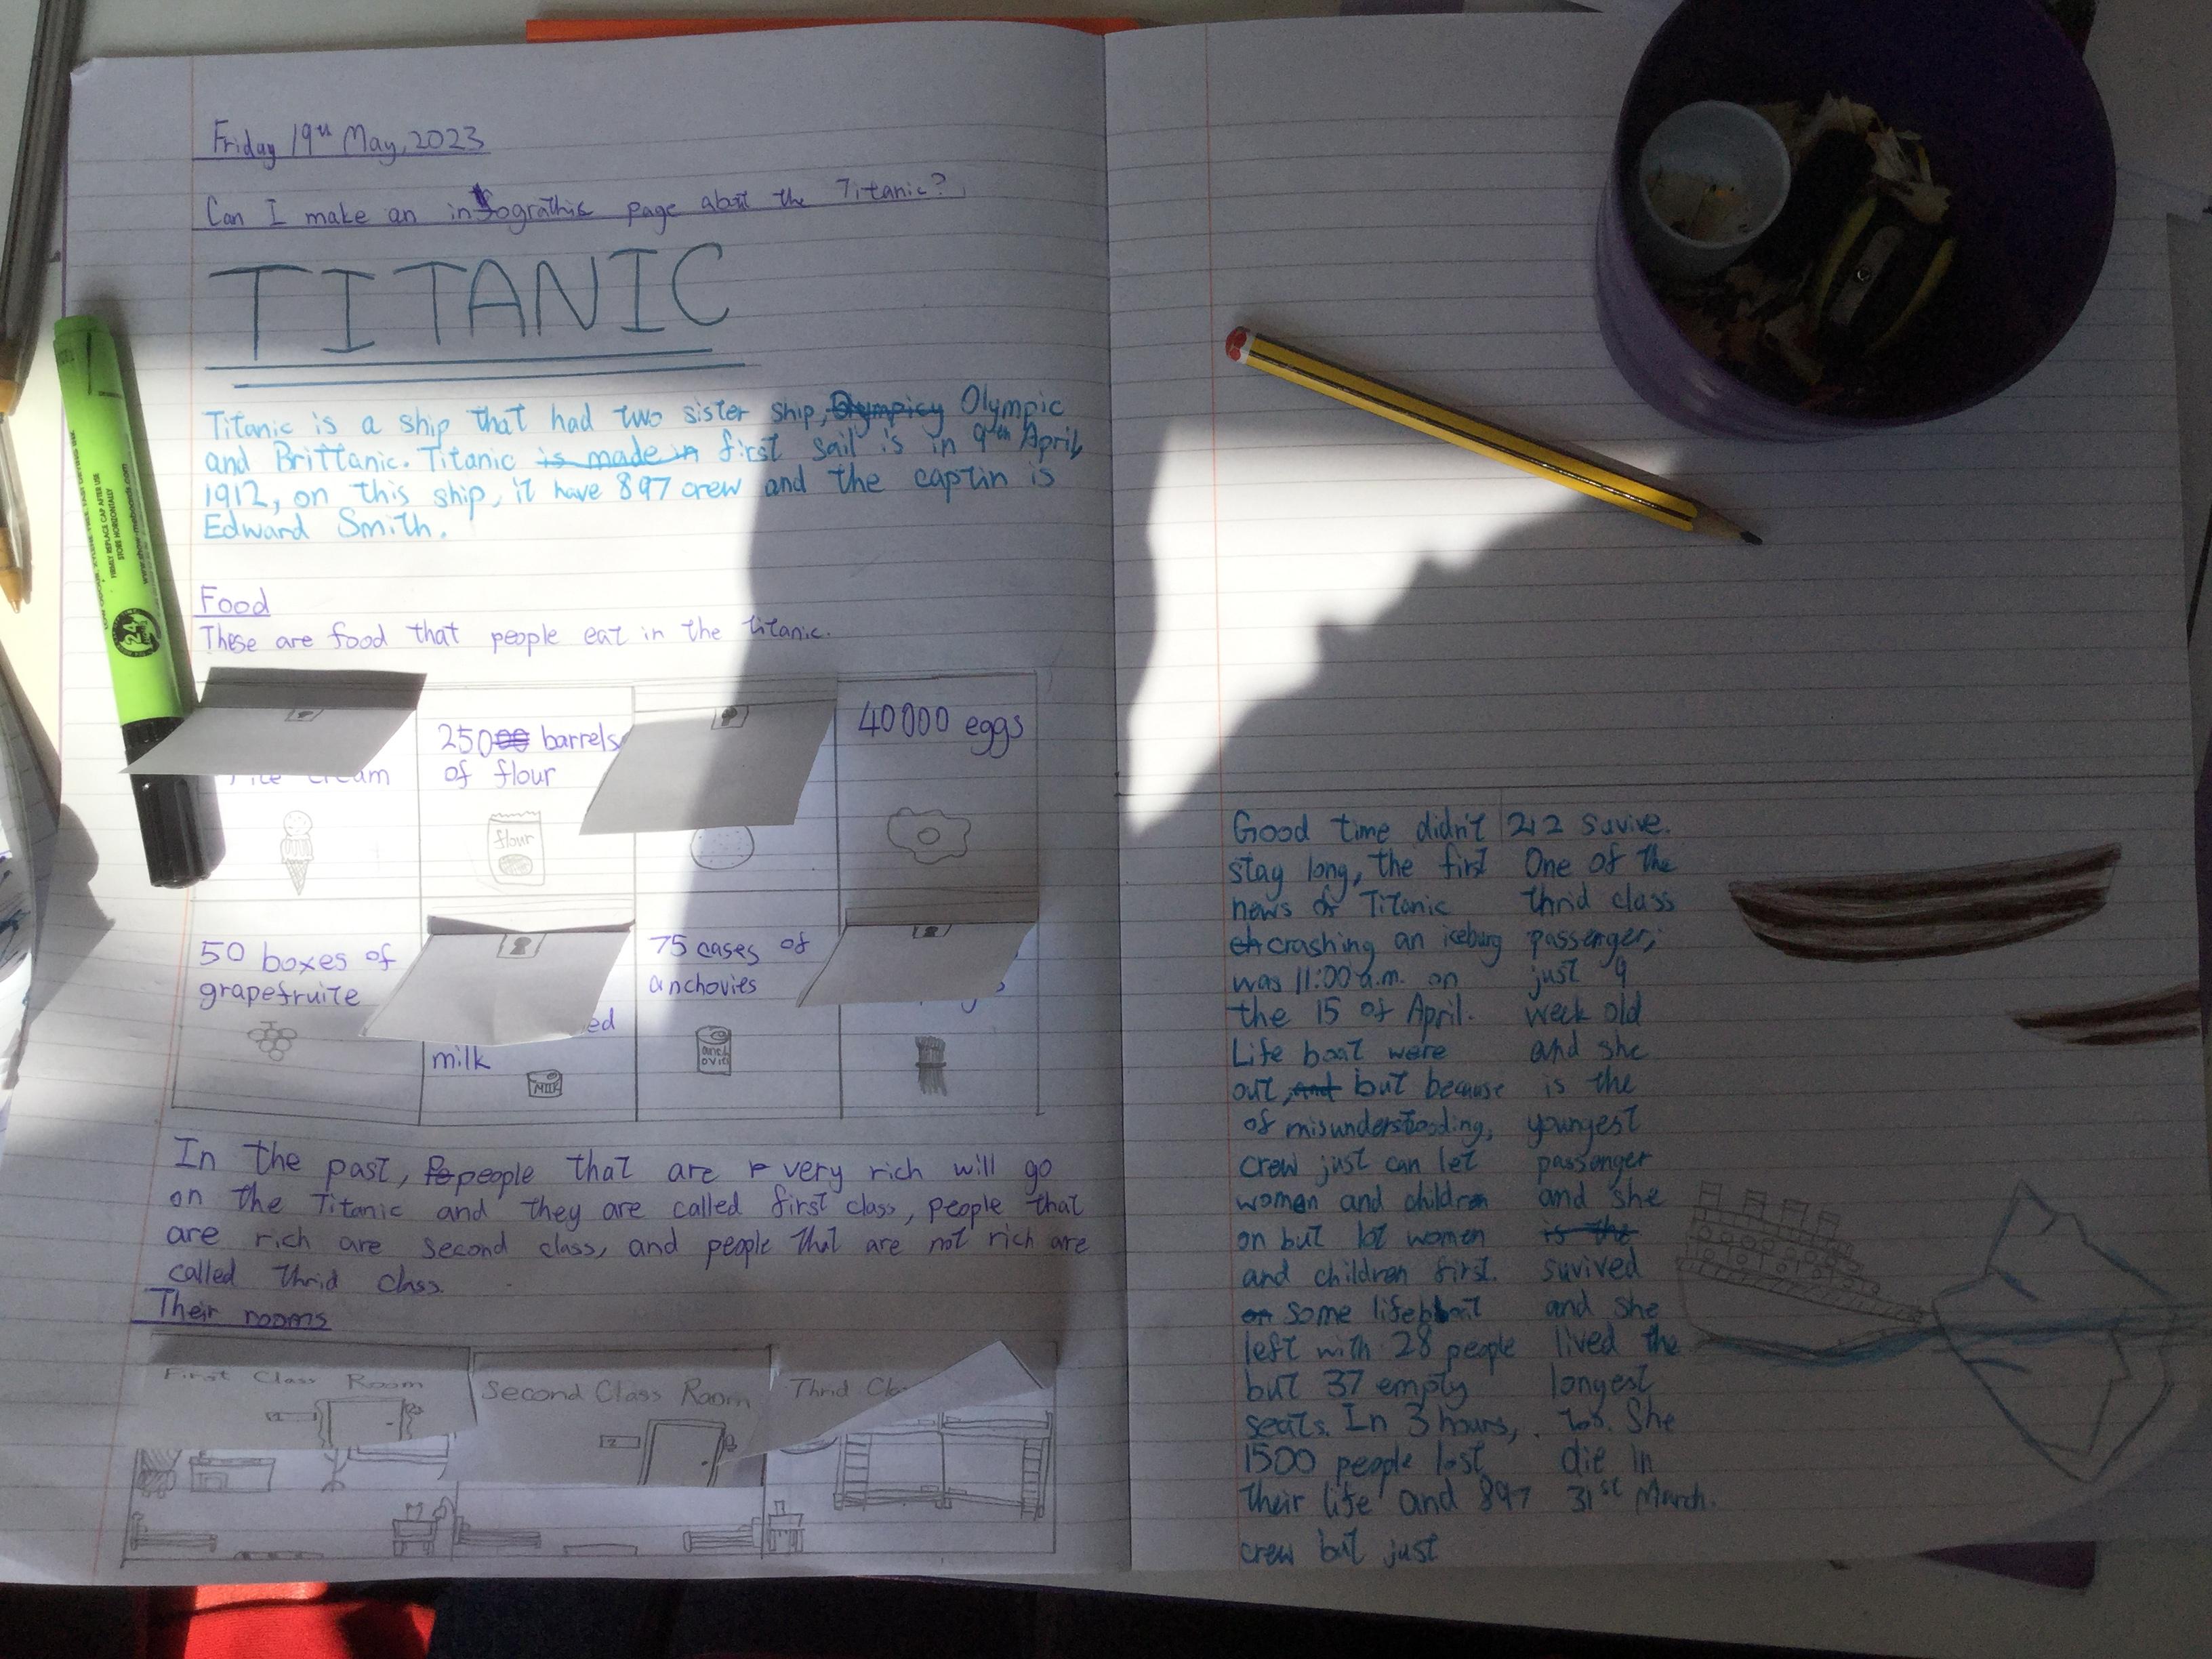 Friday 19th May, 2023
Can I make an infograthic page about the Titanic?
TITANIC
Titanic is a ship that had two sister ship, Olympicy Olympic
and Brittanic. Titanic is made in first sail is in 9th April
1912, on this ship, it have 897 crew and the captin is
Edward Smith.
Food
These are food that people eat in the titanic.
ice cream
250 barrels
of flour
flour
40000 eggs
50 boxes of
grapefruite
ed
milk
MILK
75 cases of
anchovies
anch
ovies
In the past, Pe people that are r very rich will go
on the Titanic and they are called first class, people that
are rich are second class, and people that are not rich are
called thrid class.
Their rooms
First Class Room
Second Class Room
Thrid Cla
Good time didn't
stay long, the first
news of Titanic
ch crashing an iceburg
was 11:00 a.m. on
the 15 of April.
Life boat were
out, and but because
of misunderstooding,
crew just can let
women and children
on but lot women
and children first.
on some lifeboat
left with 28 people
but 37 empty
seats. In 3 hours,
1500 people lost
their life and 897
crew but just
212 suvive.
One of the
thrid class
passenger,
just 9
week old
and she
is the
youngest
passanger
and she
is the
suvived
and she
lived the
longest
too. She
die in
31st March.
FIRMLY REPLACE CAP AFTER USE
STORE HORIZONTALLY
www.show-meboards.com
24